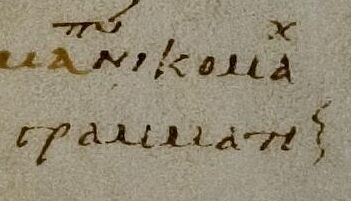 μα νικομαχ
γραμματι